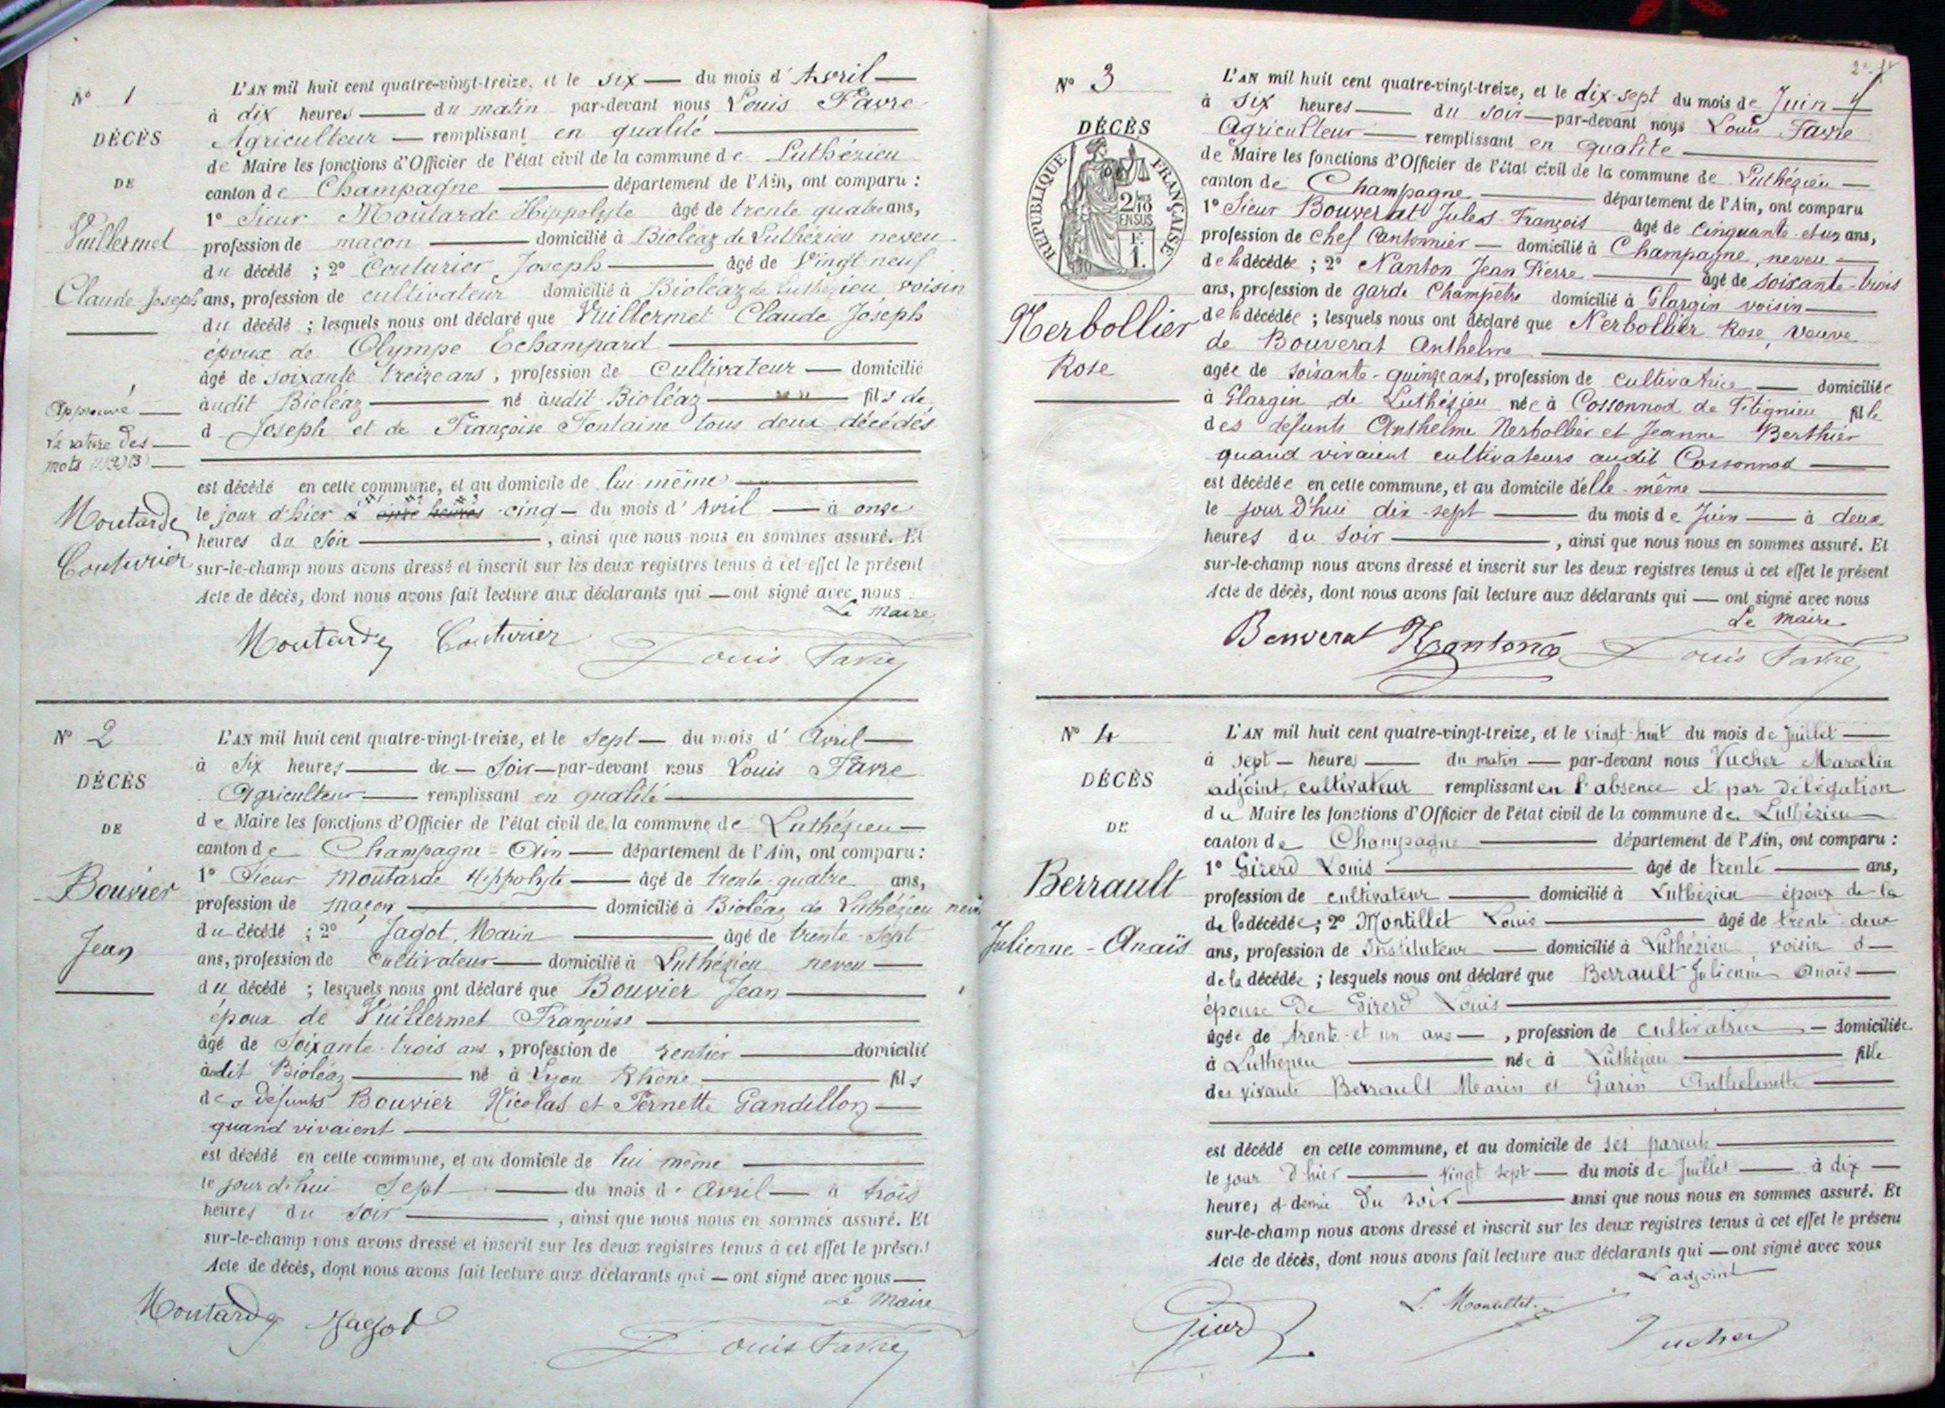 N° 1
DÉCÈS
DE
Vuillermet
Claude Joseph
L'AN mil huit cent quatre-vingt-treize, et le six du mois d'Avril
à dix heures du matin par-devant nous Louis Favre
Agriculteur remplissant en qualité
de Maire les fonctions d'Officier de l'état civil de la commune de Luthézieu
canton de Champagne département de l'Ain, ont comparu :
1° Sieur Moutarde Hippolyte âgé de trente quatre ans,
profession de maçon domicilié à Bioléaz de Luthézieu neveu
du décédé ; 2° Couturier Joseph âgé de Vingt neuf
ans, profession de cultivateur domicilié à Bioléaz de Luthézieu voisin
du décédé ; lesquels nous ont déclaré que Vuillermet Claude Joseph
époux de Olympe Echampard
âgé de soixante treize ans, profession de cultivateur domicilié
audit Bioléaz né audit Bioléaz fils de
d Joseph et de Françoise Fontaine tous deux décédés
est décédé en cette commune, et au domicile de lui même
le jour d'hier à onze heures cinq du mois d'Avril à onze
heures du soir , ainsi que nous nous en sommes assuré. Et
sur-le-champ nous avons dressé et inscrit sur les deux registres tenus à cet effet le présent
Acte de décès, dont nous avons fait lecture aux déclarants qui ont signé avec nous
Le Maire
Approuvé
la rature des
mots (1)(2)(3)
Moutarde
Couturier
Moutarde Couturier Louis Favre
N° 2
DÉCÈS
DE
Bouvier
Jean
L'AN mil huit cent quatre-vingt-treize, et le sept du mois d'Avril
à six heures du soir par-devant nous Louis Favre
Agriculteur remplissant en qualité
de Maire les fonctions d'Officier de l'état civil de la commune de Luthézieu
canton de Champagne Ain département de l'Ain, ont comparu :
1° Sieur Moutarde Hippolyte âgé de trente-quatre ans,
profession de maçon domicilié à Bioléaz de Luthézieu neveu
du décédé ; 2° Jagot Marin âgé de trente-sept
ans, profession de cultivateur domicilié à Luthézieu neveu
du décédé ; lesquels nous ont déclaré que Bouvier Jean
époux de Vuillermet Françoise
âgé de soixante-trois ans, profession de rentier domicilié
audit Bioléaz né à Lyon Rhône fils
des défunts Bouvier Nicolas et Pernette Gandillon
quand vivaient
est décédé en cette commune, et au domicile de lui même
le jour d'hui sept du mois d'Avril à trois
heures du soir , ainsi que nous nous en sommes assuré. Et
sur-le-champ nous avons dressé et inscrit sur les deux registres tenus à cet effet le présent
Acte de décès, dont nous avons fait lecture aux déclarants qui ont signé avec nous
Le Maire
Moutarde Jagot Louis Favre
N° 3
DÉCÈS
RÉPUBLIQUE FRANÇAISE
2/10 EN SUS
F. 1.
Nerbollier
Rose
L'AN mil huit cent quatre-vingt-treize, et le dix-sept du mois de Juin
à six heures du soir par-devant nous Louis Favre
Agriculteur remplissant en qualité
de Maire les fonctions d'Officier de l'état civil de la commune de Luthézieu
canton de Champagne département de l'Ain, ont comparu
1° Sieur Bouverat Jules François âgé de cinquante-et-un ans,
profession de chef cantonnier domicilié à Champagne, neveu
de la décédée ; 2° Nanton Jean Pierre âgé de soixante-trois
ans, profession de garde champêtre domicilié à Glargin voisin
de la décédée ; lesquels nous ont déclaré que Nerbollier Rose, veuve
de Bouverat Anthelme
agée de soixante-quinze ans, profession de cultivatrice domiciliée
à Glargin de Luthézieu née à Cossonnod de Fitignieu fille
des défunts Anthelme Nerbollier et Jeanne Berthier
quand vivaient cultivateurs audit Cossonnod
est décédée en cette commune, et au domicile d'elle-même
le jour d'hui dix-sept du mois de Juin à deux
heures du soir , ainsi que nous nous en sommes assuré. Et
sur-le-champ nous avons dressé et inscrit sur les deux registres tenus à cet effet le présent
Acte de décès, dont nous avons fait lecture aux déclarants qui ont signé avec nous
Le Maire
Bouverat Nanton Louis Favre
N° 4
DÉCÈS
DE
Berrault
Julienne-Anaïs
L'AN mil huit cent quatre-vingt-treize, et le vingt-huit du mois de Juillet
à sept heures du matin par-devant nous Vucher Marcelin
adjoint, cultivateur remplissant en l'absence et par délégation
du Maire les fonctions d'Officier de l'état civil de la commune de Luthézieu
canton de Champagne département de l'Ain, ont comparu :
1° Girerd Louis âgé de trente ans,
profession de cultivateur domicilié à Luthézieu époux de la
de la décédée ; 2° Montillet Louis âgé de trente deux
ans, profession de Instituteur domicilié à Luthézieu, voisin d
de la décédée ; lesquels nous ont déclaré que Berrault Julienne Anaïs
épouse de Girerd Louis
âgée de trente-et-un ans, profession de cultivatrice domiciliée
à Luthézieu née à Luthézieu fille
des vivants Berrault Marin et Garin Anthelmette
est décédé en cette commune, et au domicile de ses parents
le jour d'hier vingt sept du mois de Juillet à dix
heures et demie du soir ainsi que nous nous en sommes assuré. Et
sur-le-champ nous avons dressé et inscrit sur les deux registres tenus à cet effet le présent
Acte de décès, dont nous avons fait lecture aux déclarants qui ont signé avec nous
L'adjoint
Girerd L. Montillet Vucher